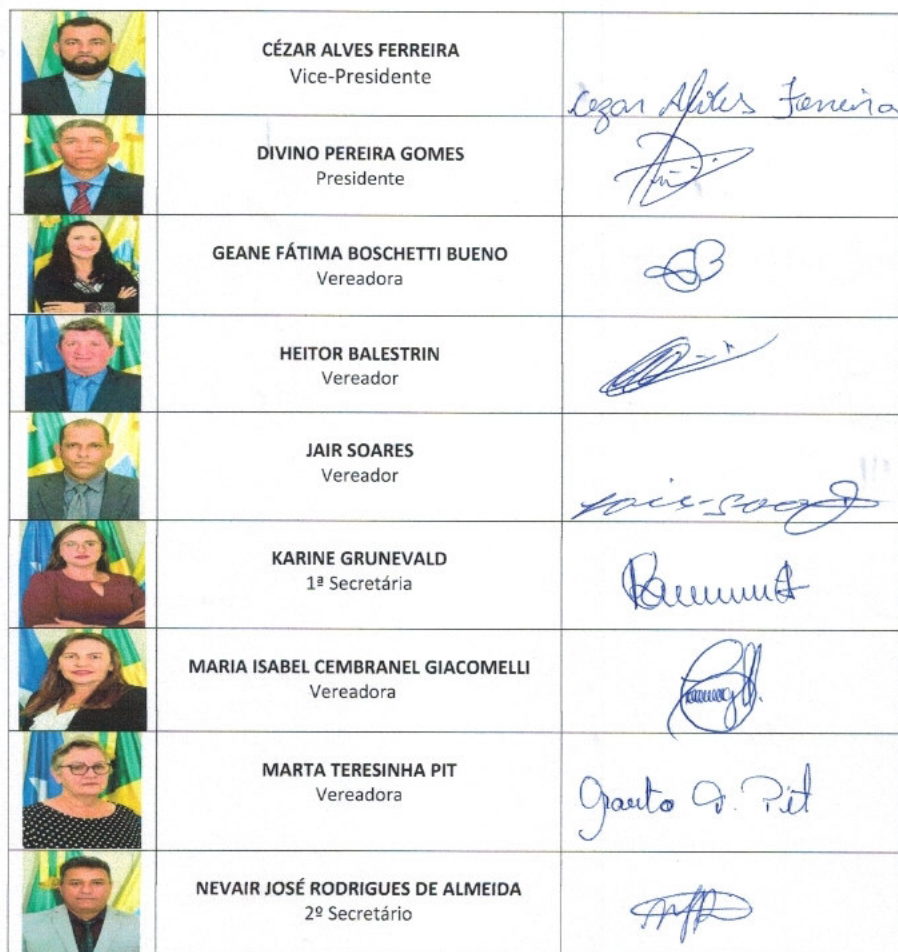 CÉZAR ALVES FERREIRA
Vice-Presidente
Cezar Alves Ferreira
DIVINO PEREIRA GOMES
Presidente
GEANE FÁTIMA BOSCHETTI BUENO
Vereadora
HEITOR BALESTRIN
Vereador
JAIR SOARES
Vereador
KARINE GRUNEVALD
1ª Secretária
MARIA ISABEL CEMBRANEL GIACOMELLI
Vereadora
MARTA TERESINHA PIT
Vereadora
Pit
NEVAIR JOSÉ RODRIGUES DE ALMEIDA
2º Secretário